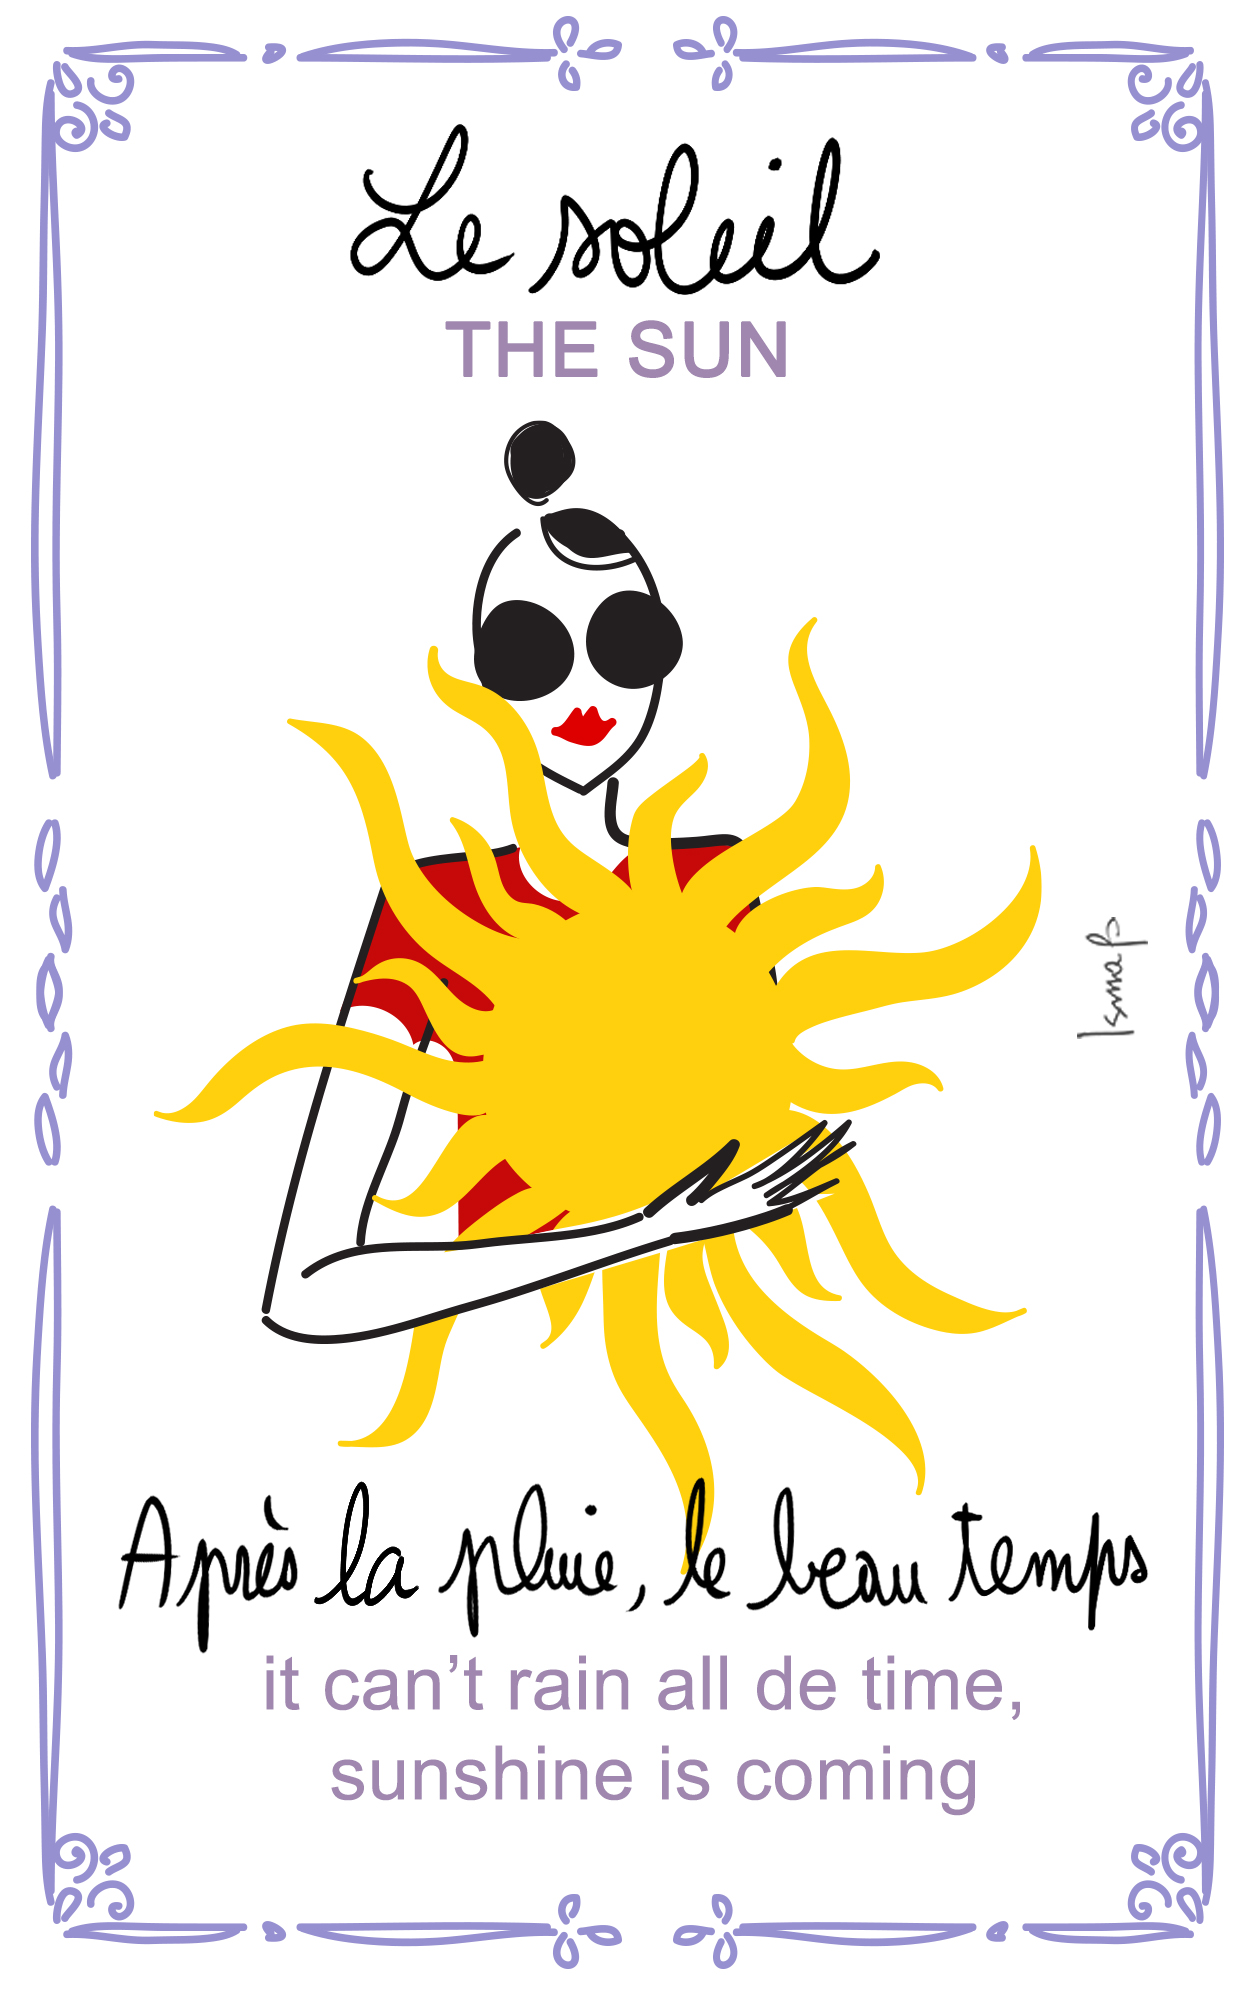 Le soleil
THE SUN
Isma B
Après la pluie, le beau temps
it can’t rain all de time,
sunshine is coming